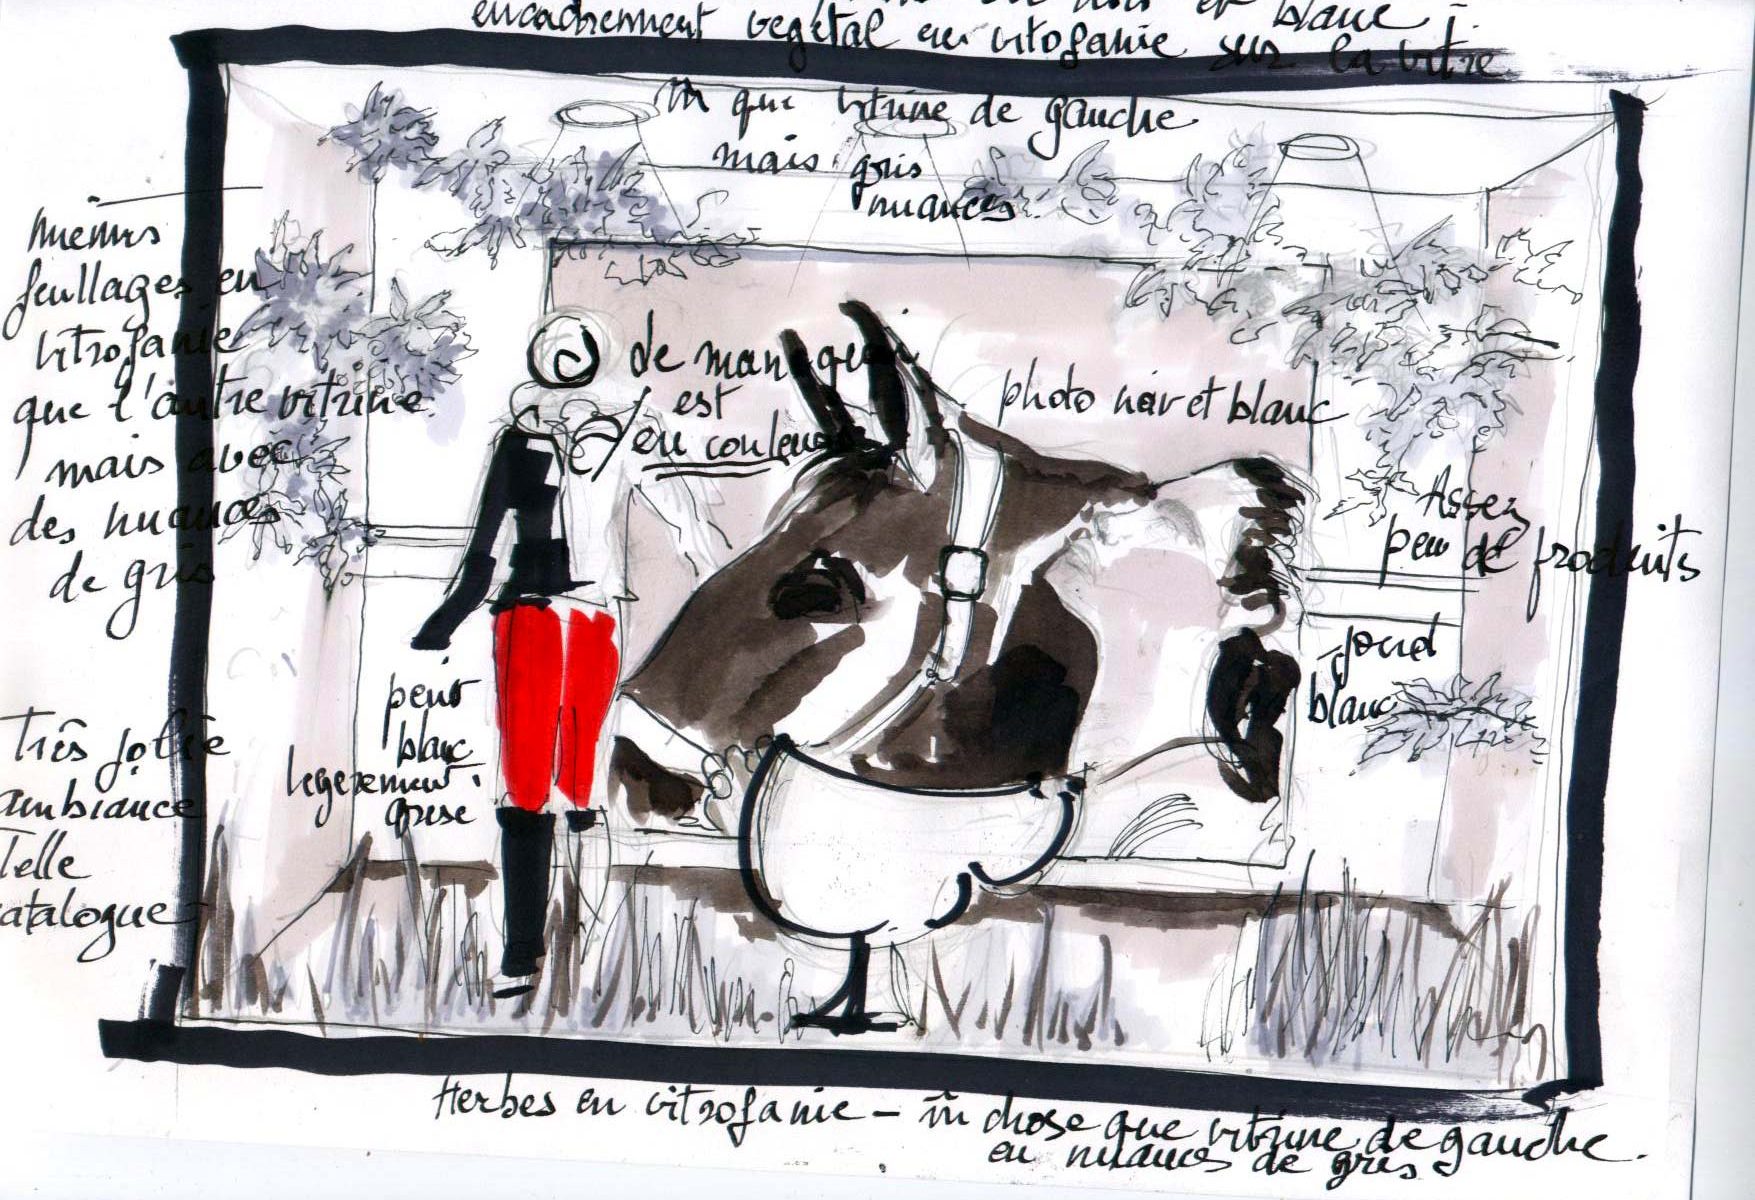 en noir et blanc
encadrement végétal en vitrofanie sur la vitre
m̂ que vitrine de gauche
mais gris
nuances
mêmes
feuillages en
vitrofanie
que l'autre vitrine
mais avec
des nuances
de gris
le mannequin
est
en couleurs
photo noir et blanc
Assez
peu de produits
fond
blanc
peint
blanc
légèrement
grise
Très jolie
ambiance
Telle
catalogue
Herbes en vitrofanie – m̂ chose que vitrine de gauche.
en nuances de gris